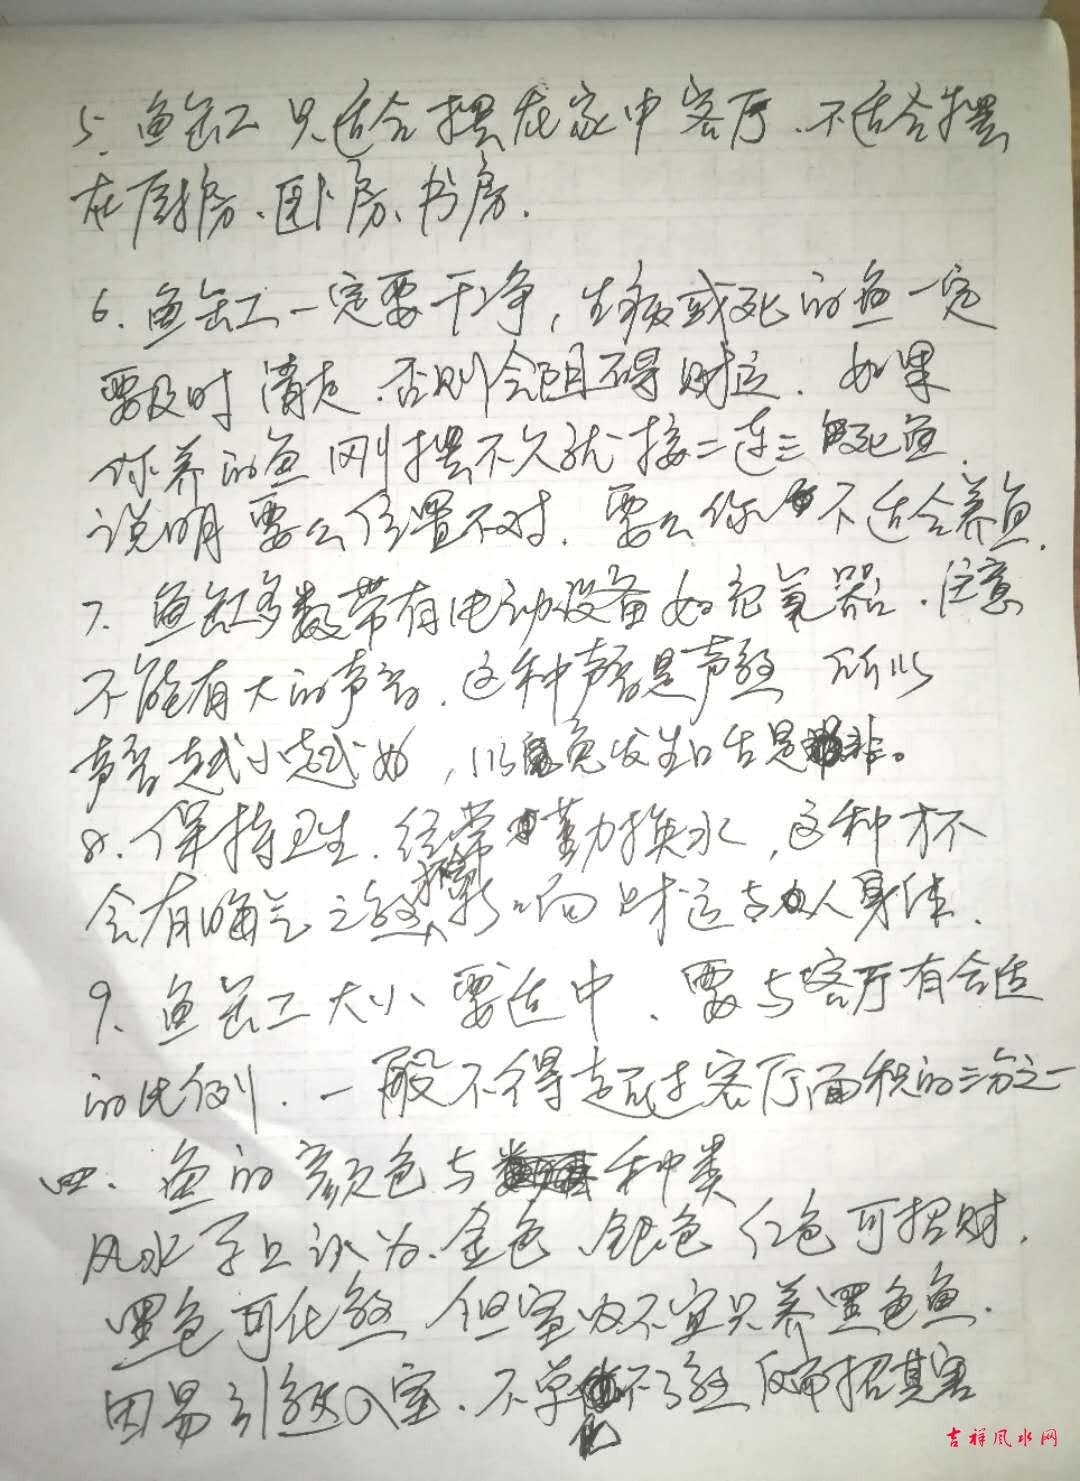 5. 鱼缸只适合摆在家中客厅、不适合摆
在厨房、卧房、书房.
6. 鱼缸一定要干净，生病或死的鱼一定
要及时清走.否则会阻碍财运. 如果
你养的鱼刚摆不久就接二连三死鱼.
说明要么位置不对.要么你不适合养鱼.
7. 鱼缸多数带有电动设备如充氧器.注意
不能有大的声音.这种声音是声煞 所以
声音越小越好，以免发生口舌是非。
8. 保持卫生.经常勤换水，这种才不
会有晦气之煞影响财运与人身体.
9. 鱼缸大小要适中、要与客厅有合适
的比例.一般不得超过客厅面积的三分之一
四. 鱼的颜色与种类
风水学上认为.金色、银色 红色可招财.
黑色可化煞 但室内不宜只养黑色鱼.
因易引煞入室.不单化不了煞 反而招其害
吉祥风水网